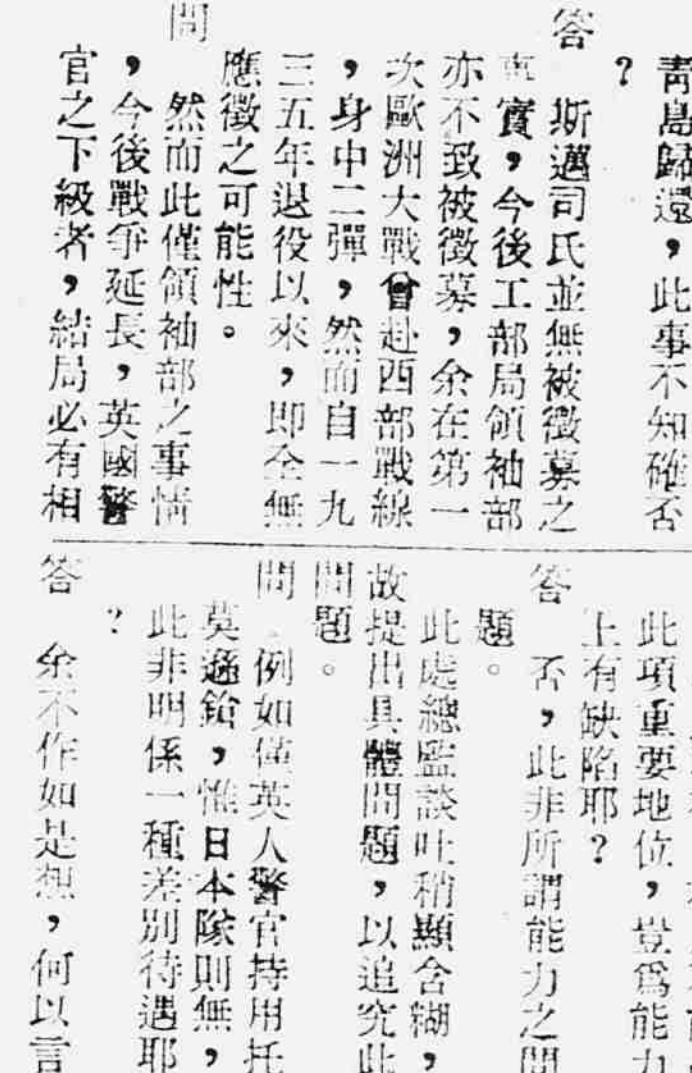 青島歸還，此事不知確否
？
答　斯邁司氏並無被徵募之
事實，今後工部局領袖部
亦不致被徵募，余在第一
次歐洲大戰曾赴西部戰線
，身中二彈，然而自一九
三五年退役以來，即全無
應徵之可能性。
問　然而此僅領袖部之事情
，今後戰爭延長，英國警
官之下級者，結局必有相
此項重要地位，豈爲能力
上有缺陷耶？
答　否，此非所謂能力之問
題。
此處總監談吐稍顯含糊，
故提出具體問題，以追究此
問題。
問　例如僅英人警官持用托
英遜鎗，惟日本隊則無，
此非明係一種差別待遇耶
？
答　余不作如是想，何以言